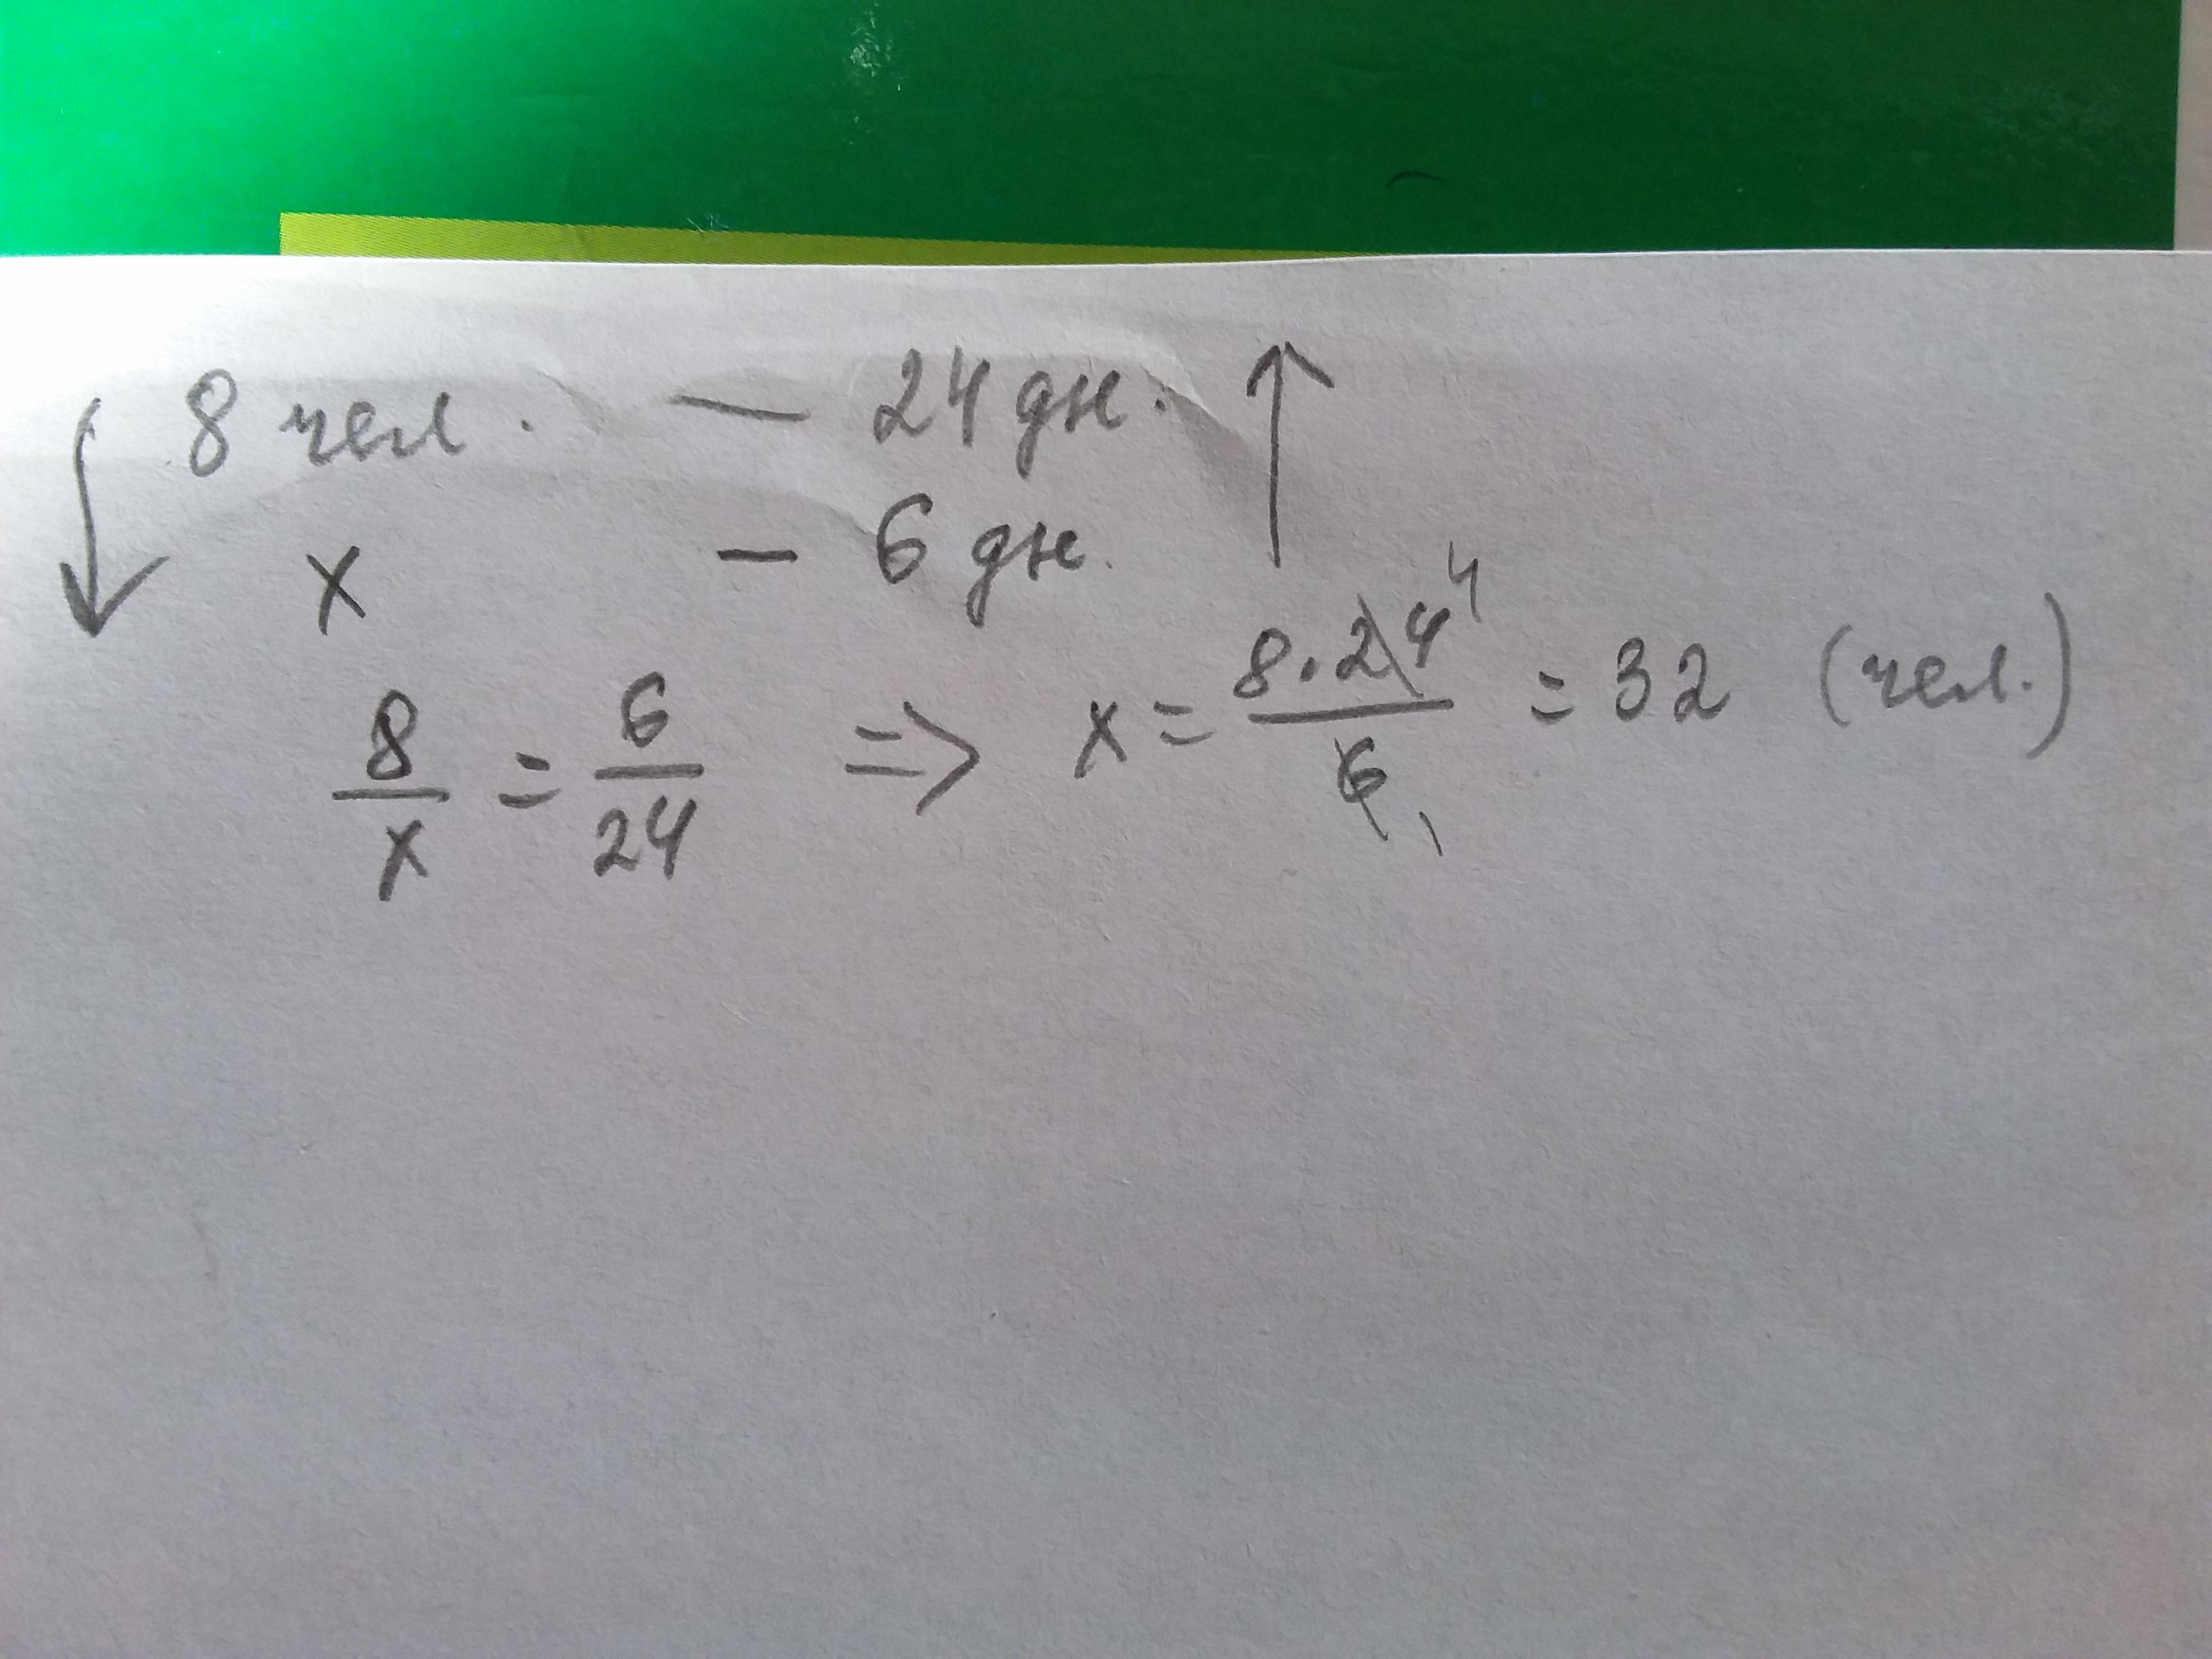 ↓ 8 чел. — 24 дн. ↑
x — 6 дн.
8/x = 6/24 => x = 8·24⁴/6₁ = 32 (чел.)